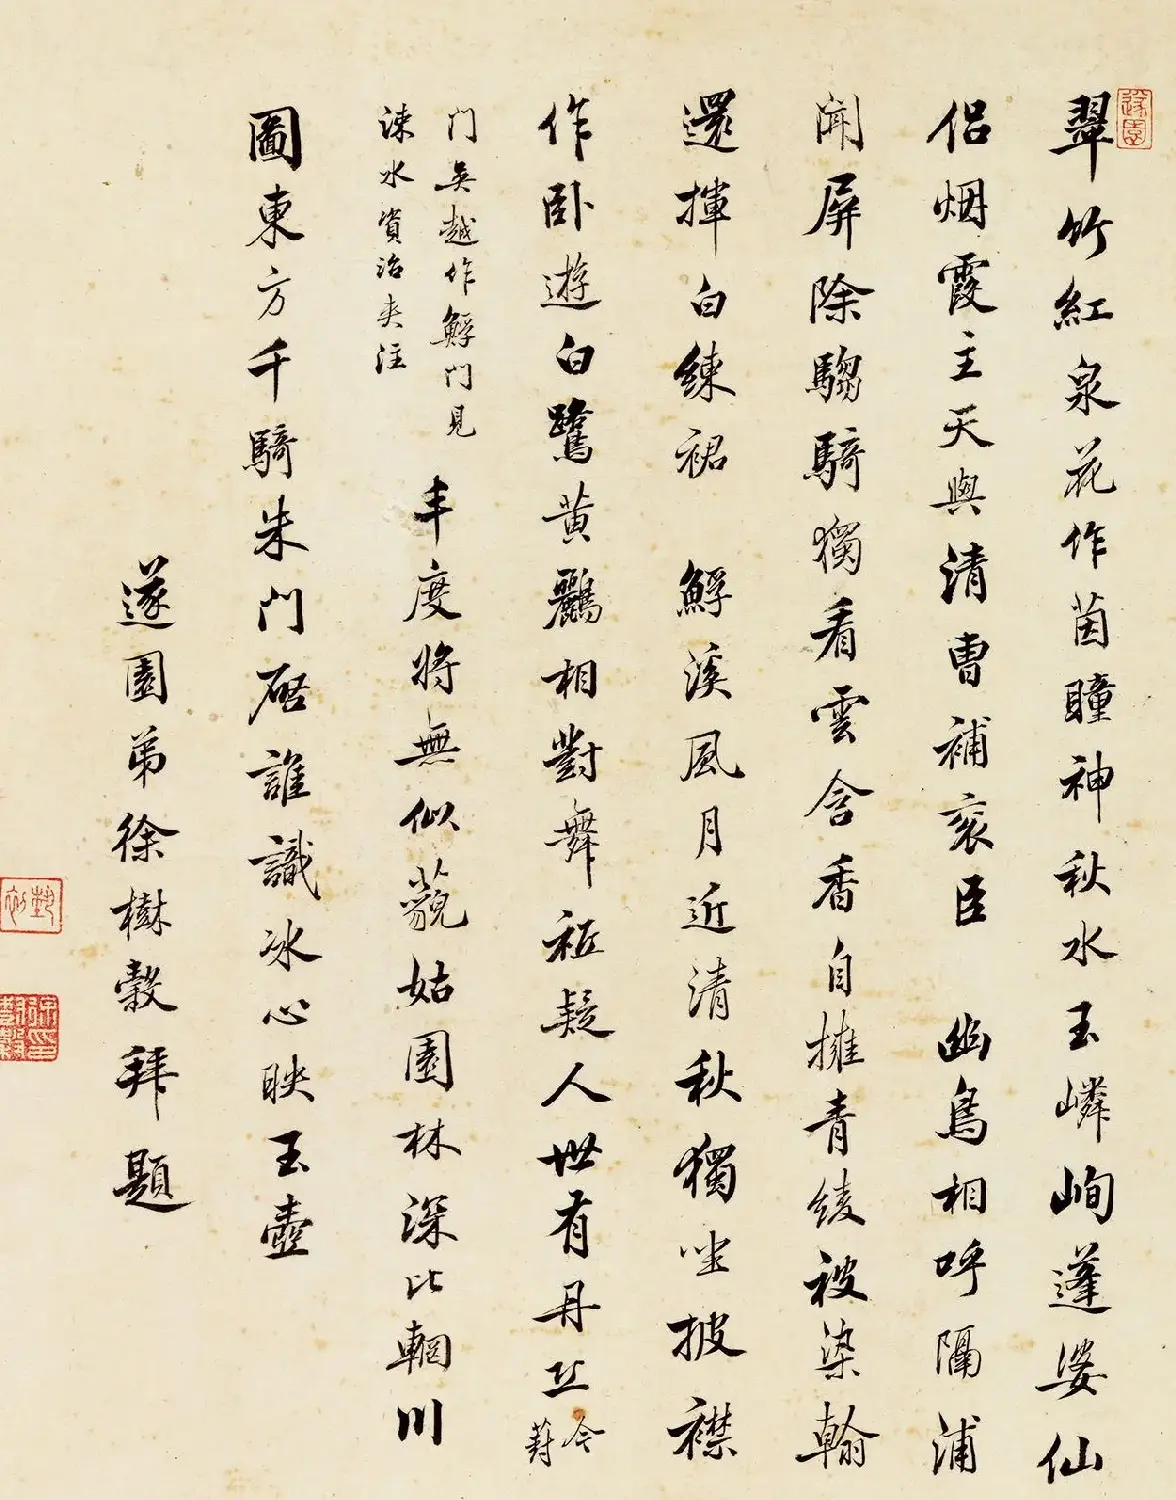 遂園
翠竹紅泉花作茵瞳神秋水玉嶙峋蓬婆仙
侶烟霞主天與清曹補袞臣 幽鳥相呼隔浦
聞屏除騶騎獨看雲含香自擁青綾被染翰
還揮白練裙 鮮溪風月近清秋獨坐披襟
作卧遊白鷺黄鸝相對舞衹疑人世有丹丘今葑
門吳越作鮮門見
涑水資治夾注
丰度將無似藐姑園林深比輞川
圖東方千騎朱門啓誰識冰心映玉壺
遂園弟徐樹榖拜題
藝初